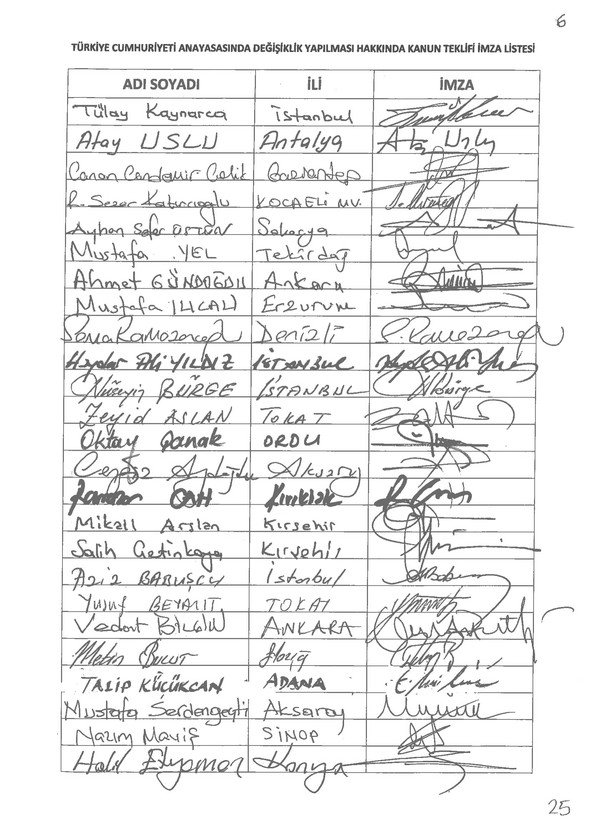 6
TÜRKİYE CUMHURİYETİ ANAYASASINDA DEĞİŞİKLİK YAPILMASI HAKKINDA KANUN TEKLİFİ İMZA LİSTESİ
ADI SOYADI İLİ İMZA
Tülay Kaynarca İstanbul
Atay USLU Antalya Atay Uslu
Canan Candemir Çelik Gaziantep
R. Sezer Katırcıoğlu KOCAELİ MV.
Ayhan Sefer ÜSTÜN Sakarya
Mustafa YEL Tekirdağ
Ahmet GÜNDOĞDU Ankara
Mustafa ILICALI Erzurum
Sema Ramazanoğlu Denizli S. Ramazanoğlu
Haydar Ali YILDIZ İSTANBUL
Hüseyin BÜRGE İSTANBUL HBürge
Zeyid ASLAN TOKAT
Oktay Çanak ORDU
Cengiz Aydoğdu Aksaray
Ramazan CAN Kırıkkale
Mikail Arslan Kırşehir
Salih Çetinkaya Kırşehir
Aziz BABUŞCU İstanbul
Yusuf BEYAZIT TOKAT
Vedat BİLGİN ANKARA
Metin BULUT Elazığ
TALİP KÜÇÜKCAN ADANA
Mustafa Serdengeçti Aksaray
Nazım Maviş SİNOP
Halil Etyemez Konya
25